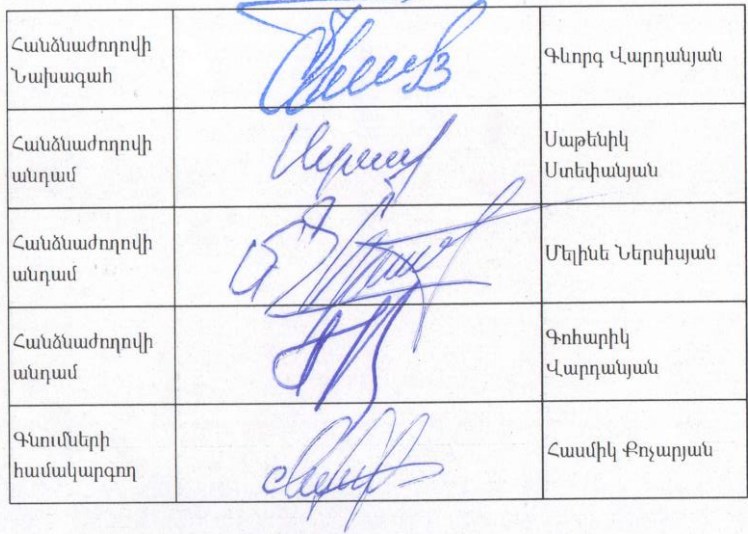 Հանձնաժողովի
Նախագահ
Գևորգ Վարդանյան
Հանձնաժողովի
անդամ
Սաթենիկ
Ստեփանյան
Հանձնաժողովի
անդամ
Մելինե Ներսիսյան
Հանձնաժողովի
անդամ
Գոհարիկ
Վարդանյան
Գնումների
համակարգող
Հասմիկ Քոչարյան